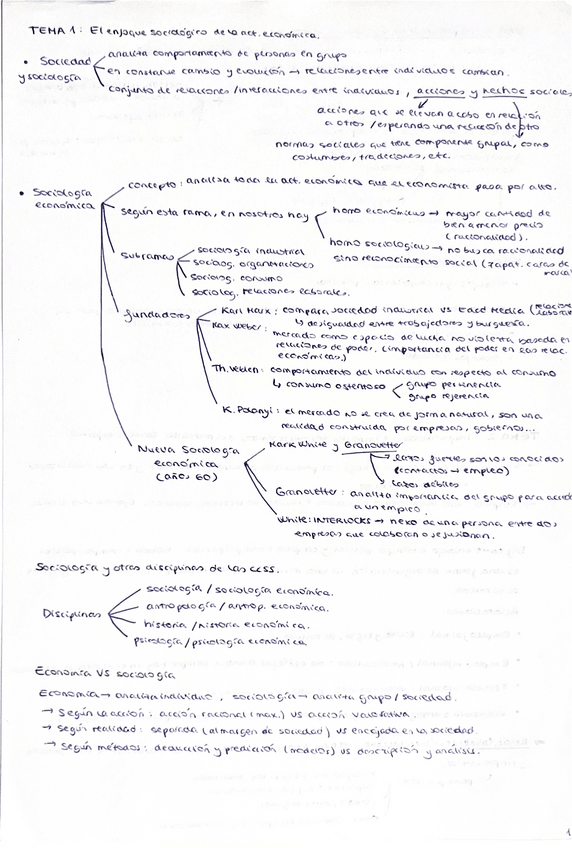 TEMA 1: El enfoque sociológico de la act. económica.
• Sociedad y sociología
analiza comportamiento de personas en grupo
en constante cambio y evolución → relaciones entre individuos cambian.
conjunto de relaciones/interacciones entre individuos, acciones y hechos sociales
acciones que se llevan a cabo en relación
a otros / esperando una reacción de otro
normas sociales que tiene componente grupal, como
costumbres, tradiciones, etc.
• Sociología económica
concepto: analiza toda la act. económica que el economista pasa por alto.
según esta rama, en nosotros hay
homo económicus → mayor cantidad de
bien a menor precio
(racionalidad).
homo sociologicus → no busca racionalidad
sino reconocimiento social (zapat. caras de
subramas
sociología industrial
sociog. organizaciones
sociolog. consumo
sociolog. relaciones laborales.
fundadores
Karl Marx: compara sociedad industrial VS Edad Media
↳ desigualdad entre trabajadores y burguesía.
Max Weber: mercado como espacio de lucha no violenta basada en
relaciones de poder, (importancia del poder en las relac.
económicas)
Th. Veblen: comportamiento del individuo con respecto al consumo
↳ consumo ostentoso
grupo pertenencia
grupo referencia
K. Polanyi: el mercado no se crea de forma natural, son una
realidad construida por empresas, gobiernos...
Nueva Sociología
económica
(años 60)
Mark White y Granovetter
→ lazos fuertes son los conocidos
(contactos → empleo)
↳ lazos débiles
Granovetter: analiza importancia del grupo para acceder
a un empleo.
White: INTERLOCKS → nexo de una persona entre dos
empresas que colaboran o se fusionan.
Sociología y otras disciplinas de las CCSS.
Disciplinas
sociología / sociología económica.
antropología / antrop. económica.
historia / historia económica.
psicología / psicología económica
Economía VS sociología
Economía → analiza individuo, sociología → analiza grupo / sociedad.
→ Según la acción: acción racional (max.) VS acción valorativa.
→ según realidad: separada (al margen de sociedad) VS encajada en la sociedad.
→ Según métodos: deducción y predicción (modelos) VS descripción y análisis.
1